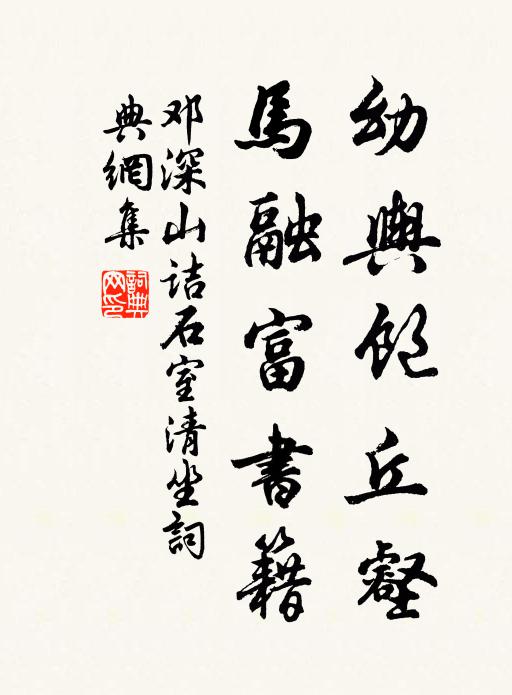 幼輿飽丘壑
馬融富書籍
邓深山诘石室清坐詞
典網集
詞典
网印